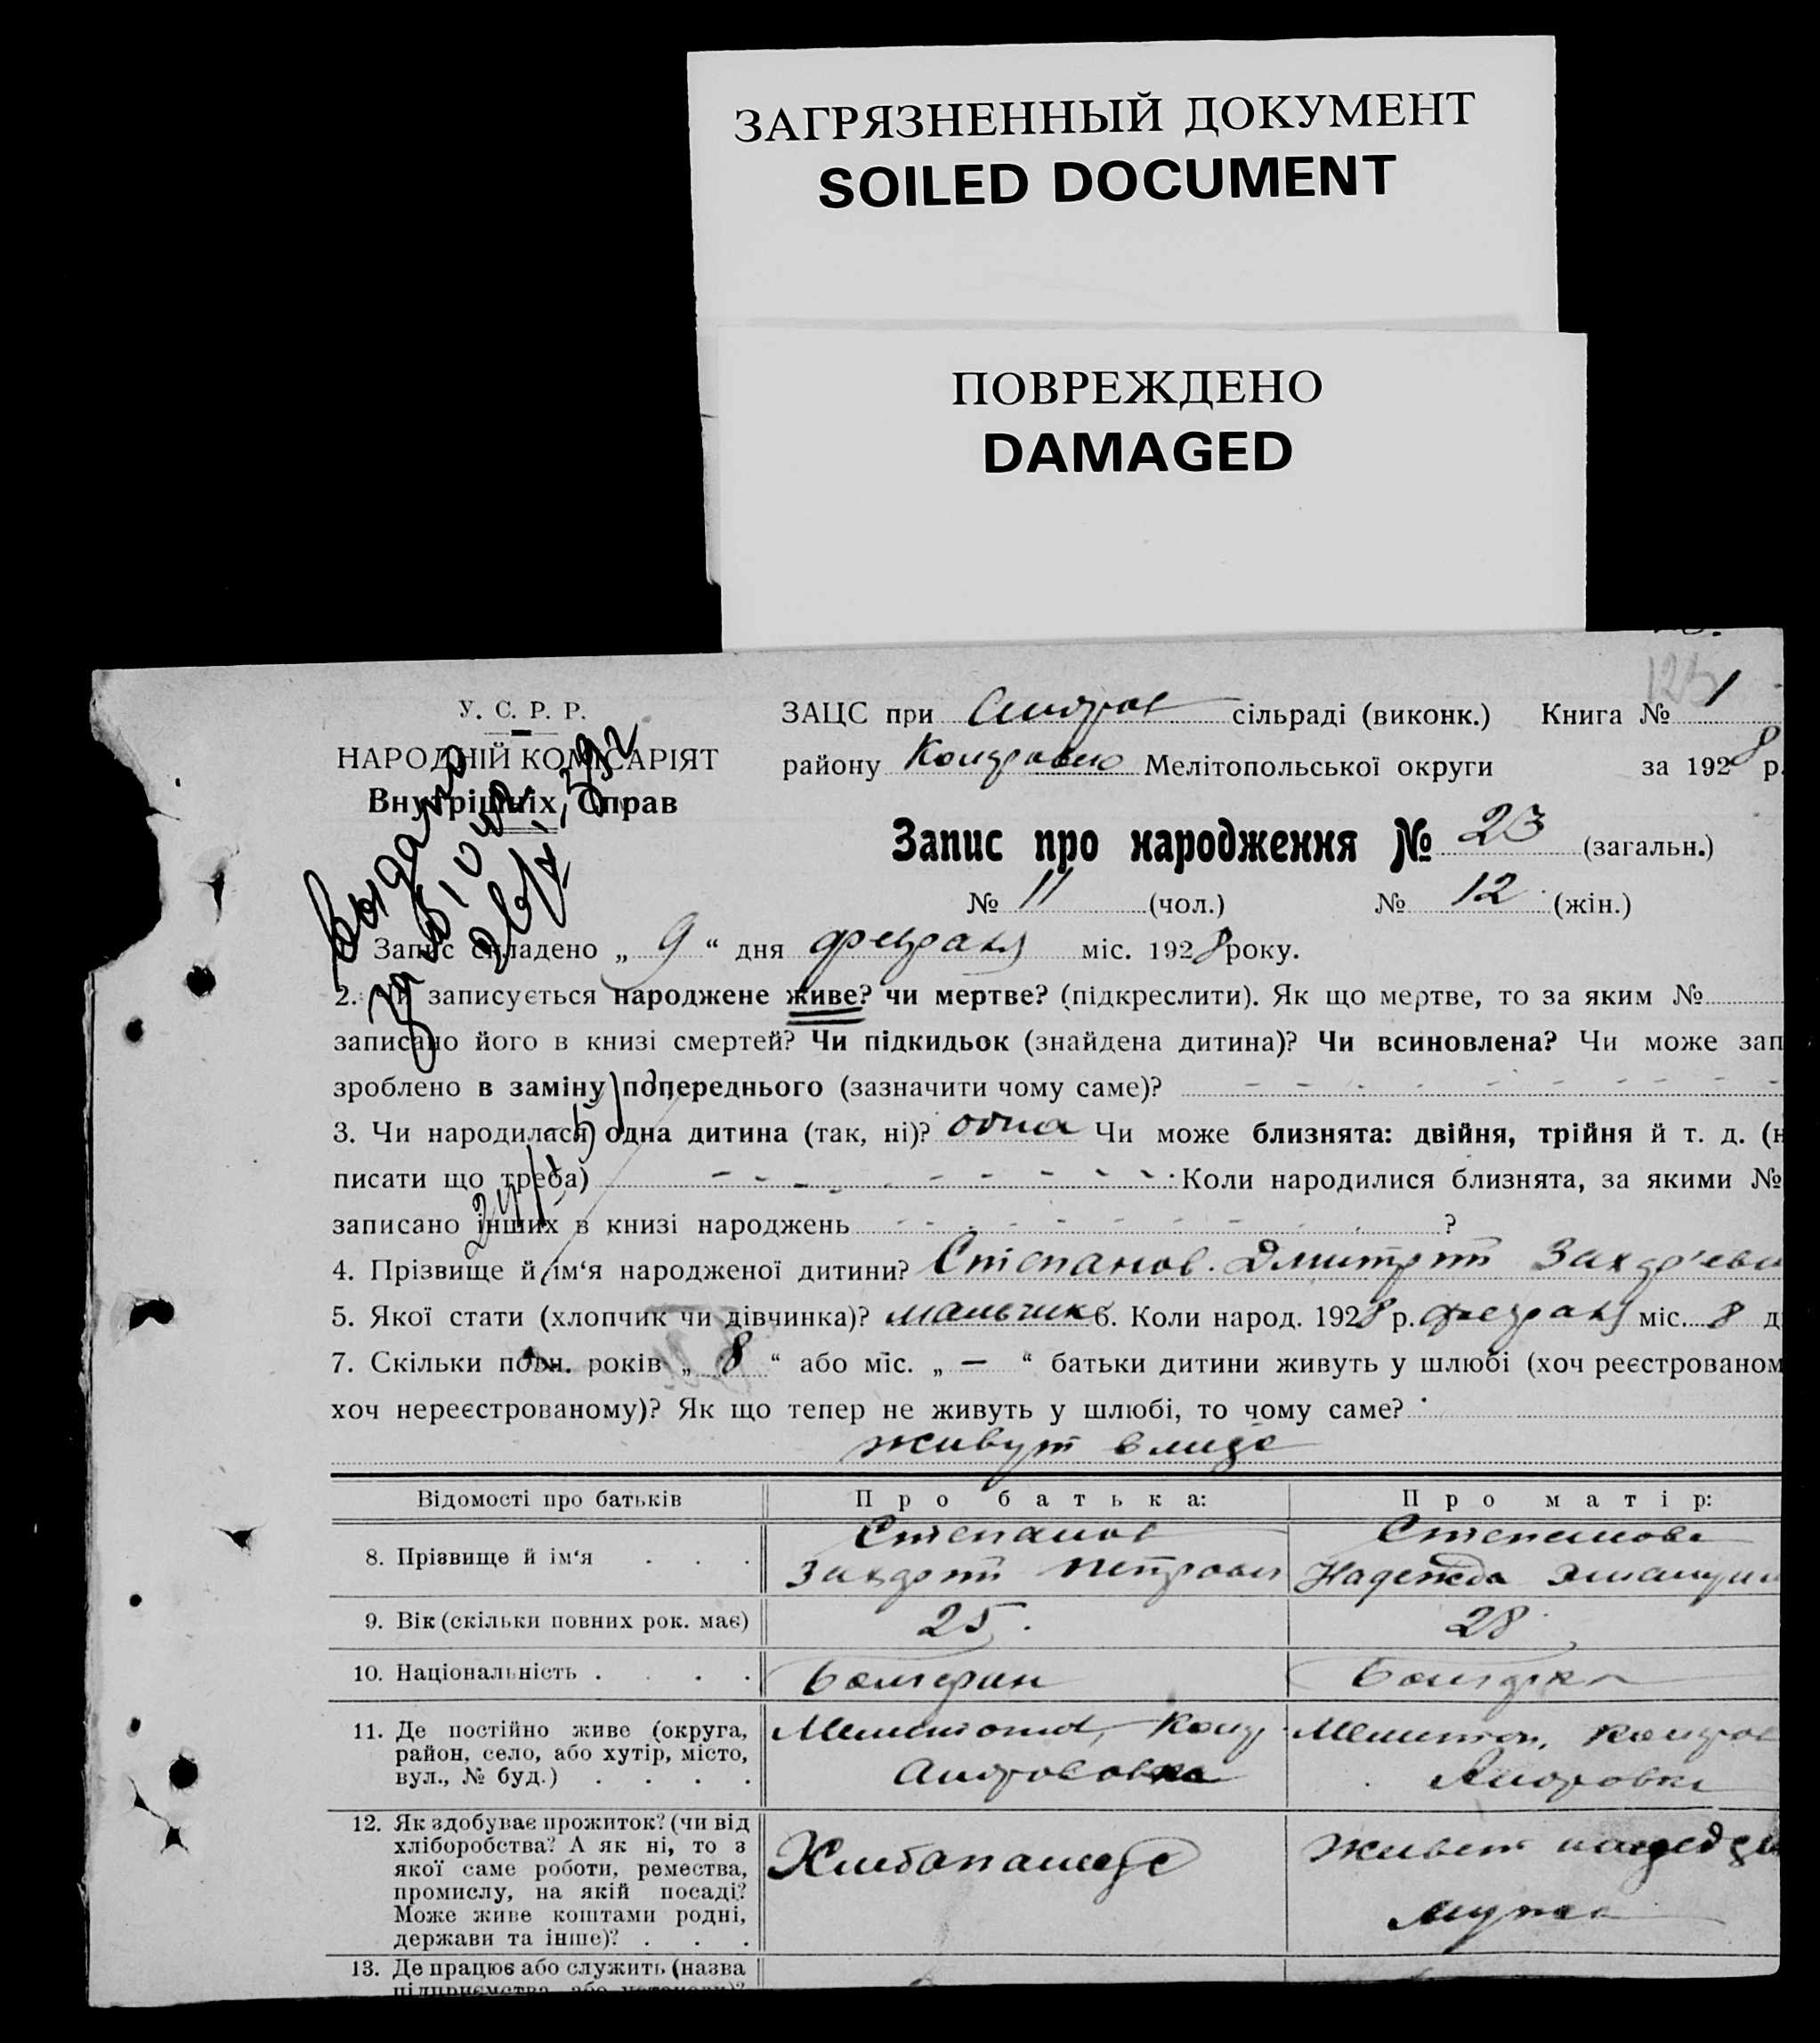 ЗАГРЯЗНЕННЫЙ ДОКУМЕНТ
SOILED DOCUMENT
ПОВРЕЖДЕНО
DAMAGED
У. С. Р. Р.
НАРОДНІЙ КОМІСАРІЯТ
Внутрішніх Справ
ЗАЦС при сільраді (виконк.) Книга № 1
району Мелітопольської округи за 1928 р.
Запис про народження № 23 (загальн.)
№ 11 (чол.) № 12 (жін.)
Запис складено „ 9 “ дня февраля міс. 1928 року.
2. Чи записується народжене живе? чи мертве? (підкреслити). Як що мертве, то за яким №
записано його в книзі смертей? Чи підкидьок (знайдена дитина)? Чи всиновлена? Чи може зап
зроблено в заміну попереднього (зазначити чому саме)?
3. Чи народилася одна дитина (так, ні)? одна Чи може близнята: двійня, трійня й т. д. (н
писати що треба) Коли народилися близнята, за якими №
записано інших в книзі народжень ?
4. Прізвище й ім‘я народженої дитини? Степанов Дмитрий
5. Якої стати (хлопчик чи дівчинка)? мальчик 6. Коли народ. 1928 р. февраля міс. 8 д
7. Скільки повн. років „ 8 “ або міс. „ — “ батьки дитини живуть у шлюбі (хоч реєстрованом
хоч нереєстрованому)? Як що тепер не живуть у шлюбі, то чому саме?
живут
Відомості про батьків Про батька: Про матір:
Степанов Степанова
8. Прізвище й ім‘я Петрович Надежда
9. Вік (скільки повних рок. має) 25 28
10. Національність Болгарин Болгарка
11. Де постійно живе (округа,
район, село, або хутір, місто,
вул., № буд.)
12. Як здобуває прожиток? (чи від
хліборобства? А як ні, то з
якої саме роботи, ремества,
промислу, на якій посаді?
Може живе коштами родні,
держави та інше)?
Хлебопашец
мужа
13. Де працює або служить (назва
підприємства, або установи)?